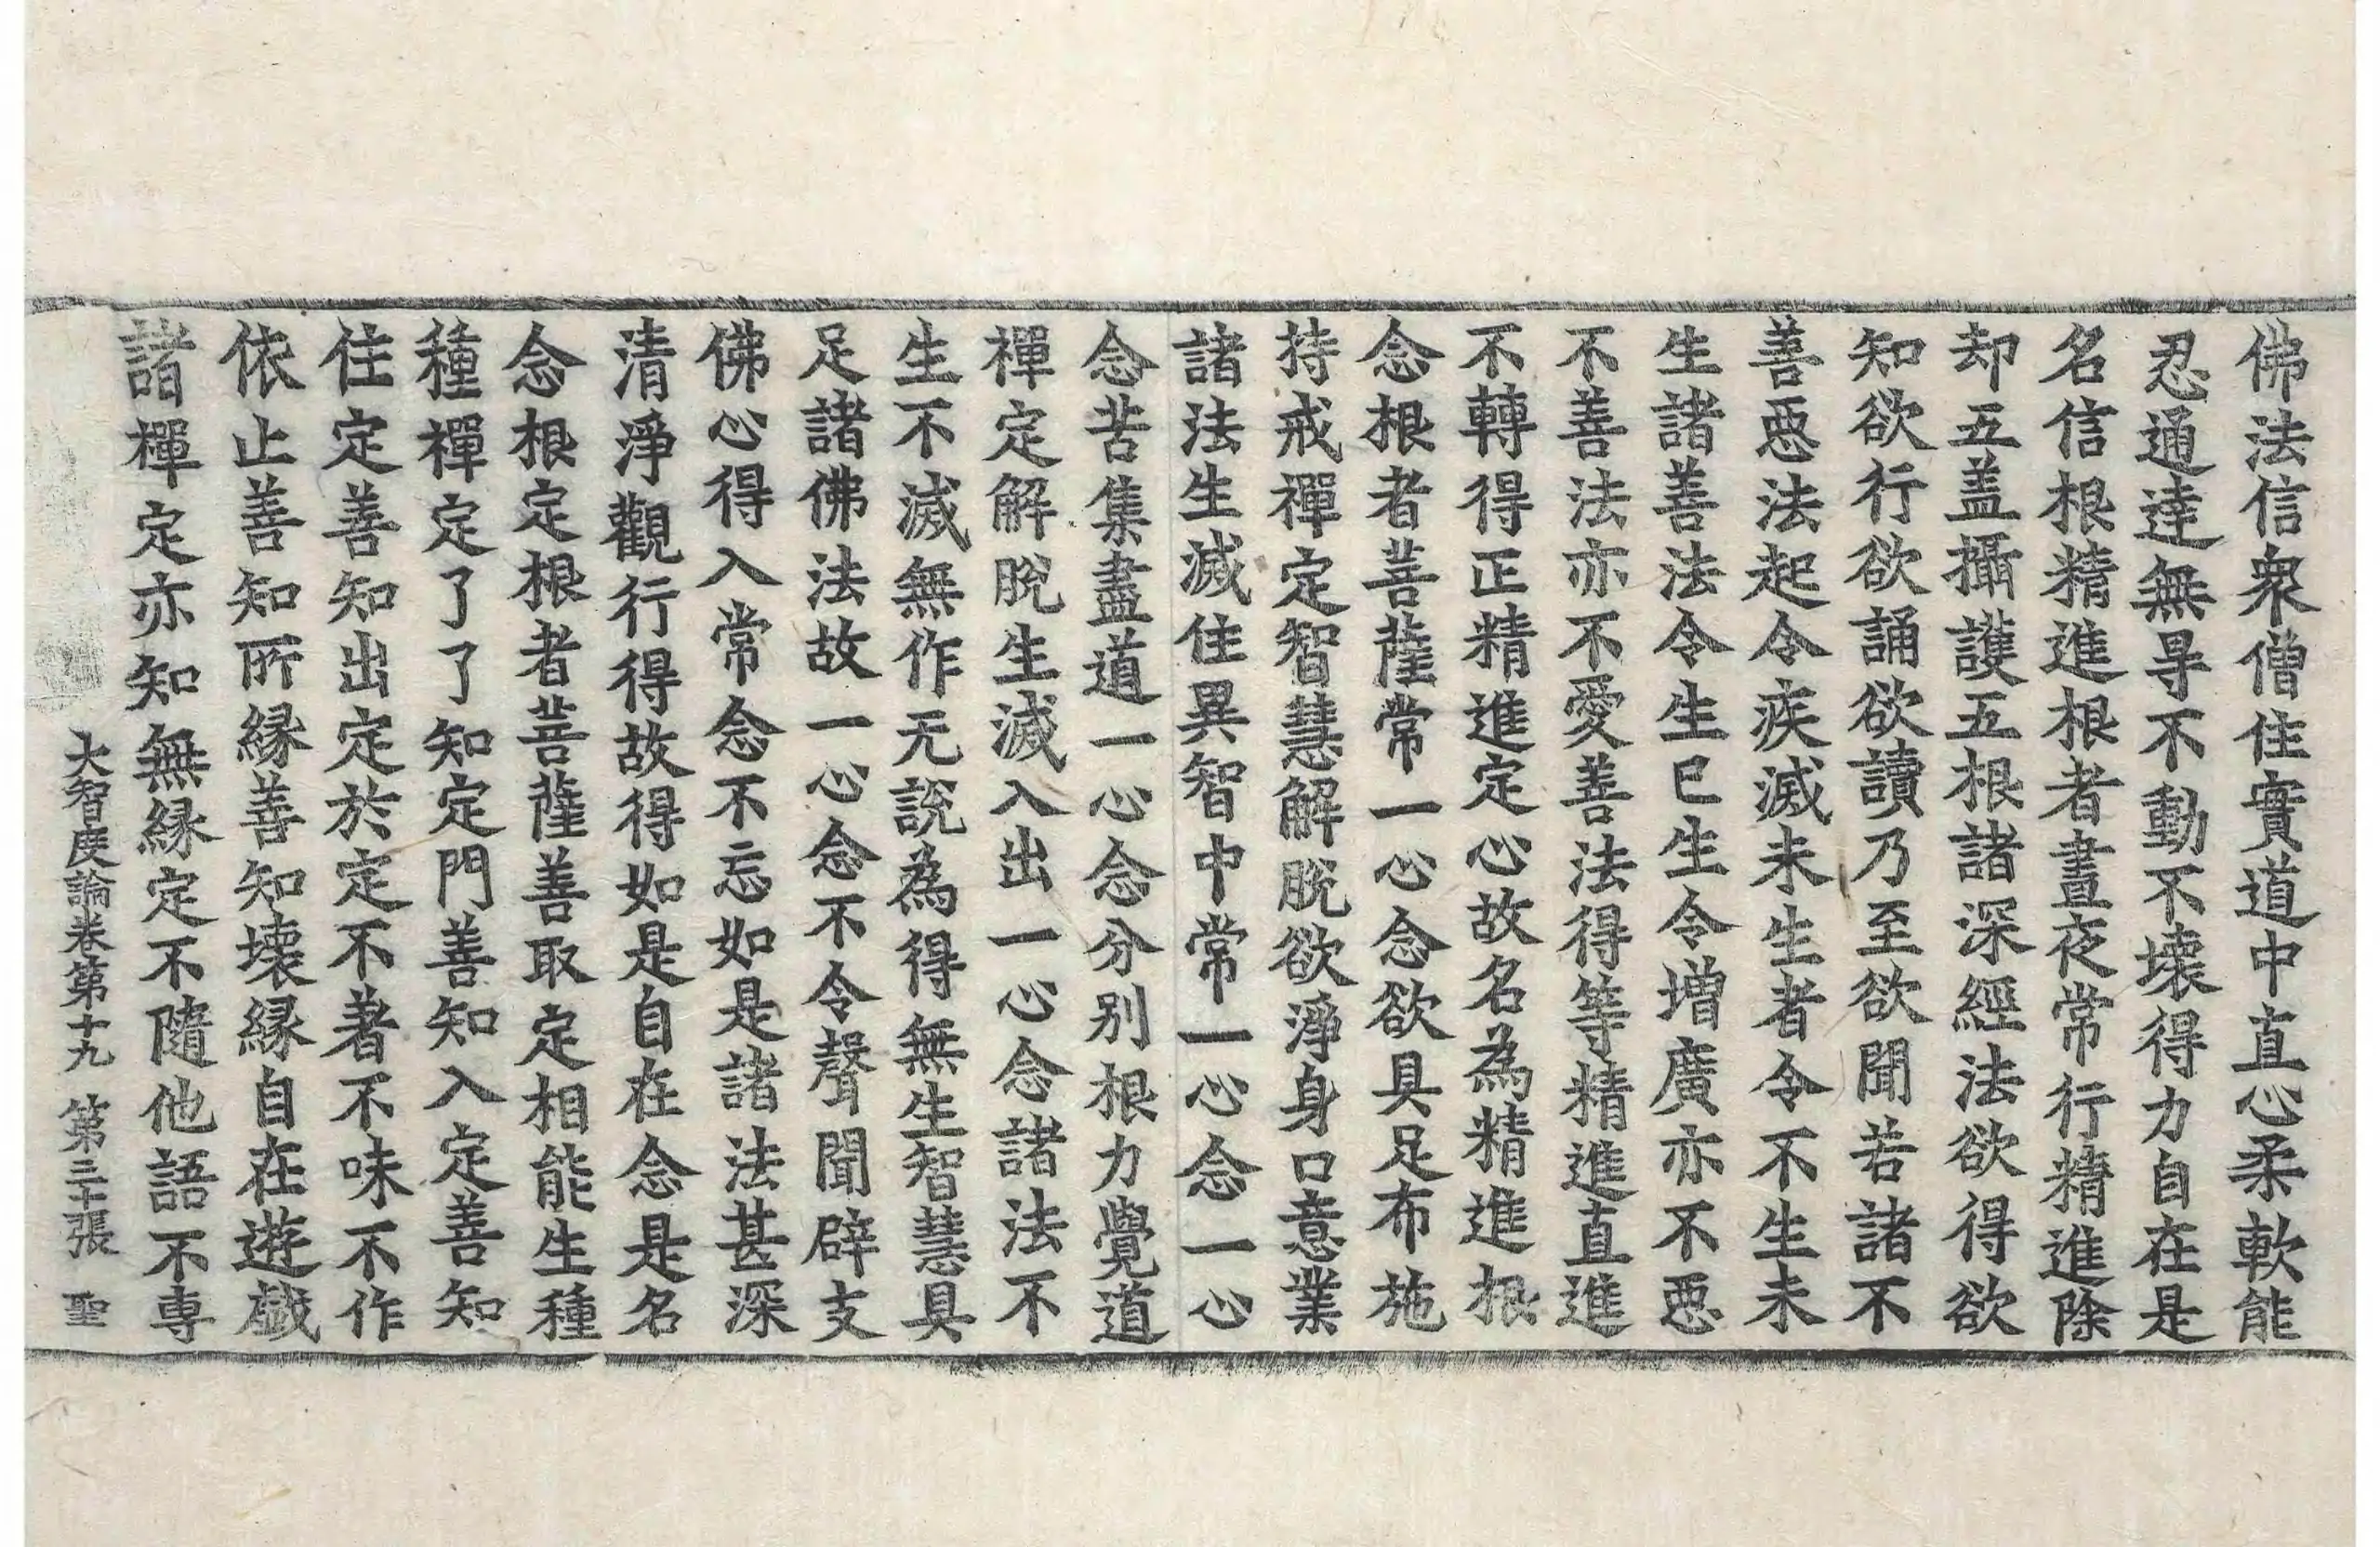 佛法信衆僧住實道中直心柔軟能
忍通達無㝵不動不壞得力自在是
名信根精進根者晝夜常行精進除
却五盖攝護五根諸深經法欲得欲
知欲行欲誦欲讀乃至欲聞若諸不
善惡法起令疾滅未生者令不生未
生諸善法令生已生令增廣亦不惡
不善法亦不愛善法得等精進直進
不轉得正精進定心故名為精進根
念根者菩薩常一心念欲具足布施
持戒禪定智慧解脫欲淨身口意業
諸法生滅住異智中常一心念一心
念苦集盡道一心念分別根力覺道
禪定解脫生滅入出一心念諸法不
生不滅無作无說為得無生智慧具
足諸佛法故一心念不令聲聞辟支
佛心得入常念不忘如是諸法甚深
清淨觀行得故得如是自在念是名
念根定根者菩薩善取定相能生種
種禪定了了知定門善知入定善知
住定善知出定於定不著不味不作
依止善知所緣善知壞緣自在遊戲
諸禪定亦知無緣定不隨他語不専
大智度論卷第十九 第三十張 聖